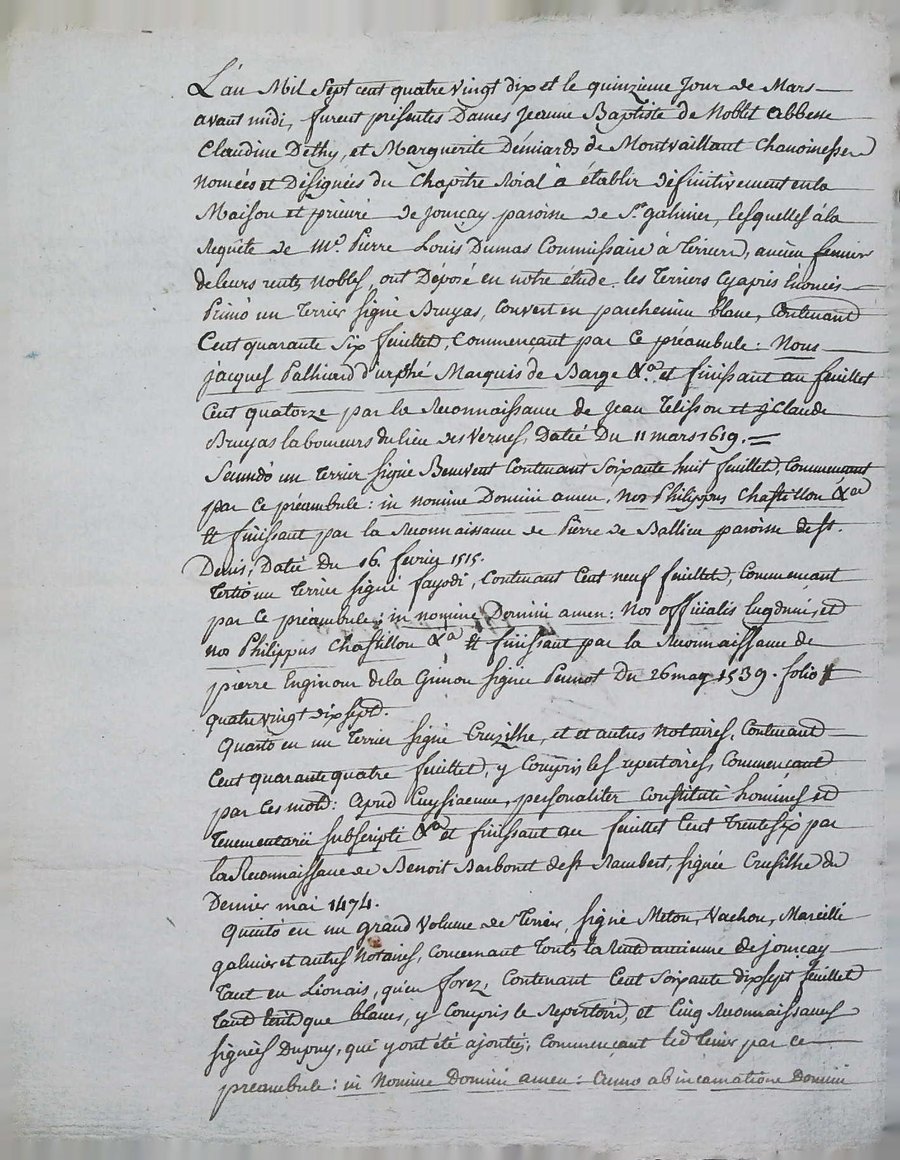 L'an Mil Sept cent quatre vingt dix et le quinzieme Jour de Mars
avant midi, furent présentes Dames Jeanne Baptiste de Noblet abbesse
Claudine Dethy, et Marguerite Démiards de Montvaillant Chanoinesses
nomées et Désignées du Chapitre Roïal à établir définitivement en la
Maison et prieuré de Jourçay paroisse de St galmier, lesquelles à la
Requête de Me. Pierre Louis Dumas Commissaire à Terriers, ancien fermier
de leurs rentes Nobles, ont Déposé en notre étude, les Terriers Cyaprès Enoncés
Primò un Terrier signé Bruyas, Couvert en parchemin blanc, Contenant
Cent quarante Six feuillets, Commençant par Ce préambule: Nous
Jacques Palhiard d'urphé Marquis de Barge &a. et finissant au feuillet
Cent quatorze par la Reconnaissance de Jean Telisson et Claude
Bruyas laboureurs du lieu des Vernes, Datée Du 11 mars 1619.
Secundò un Terrier signé Benevent Contenant Soixante huit feuillets, Commençant
par Ce préambule: in nomine Domini amen, Nos Philippus Chastillon &a
& finissant par la Reconnaissance de Pierre de Ballieu paroisse de St.
Denis, Datée du 16. fevrier 1515.
Tertiò un Terrier signé fayodi, Contenant Cent neuf feuillets, Commencant
par Ce préambule: in nomine Domini amen: Nos officialis lugduni, et
nos Philippus Chastillon &a & finissant par la Reconnaissance de
pierre Enginour de la Gimon signée Pennot Du 26 may 1539. folio
quatre vingt dix sept.
Quarto en un Terrier signé Cruzilhe, et et autres Notaires, Contenant
Cent quarante quatre feuillets, y Compris les repertoires, Commençant
par Ces mots: Apud Cuysiacum, personaliter Constituti homines et
Tenementarii subscripti &a et finissant au feuillet Cent Trente six par
la Reconnaissance de Benoit Barbonet de St Rambert, signée Crusilhe du
Dernier mai 1474.
Quintò en un grand Volume de Terrier, signé Meton, Vachon, Mareille
galmier et autres Notaires, Concernant Toute la rente ancienne de jourçay
Tant en Lionais, qu'en forez, Contenant Cent soixante dix sept feuillets
Tant écrits que blancs, y Compris le Repertoire, et Cinq Reconnaissances
signées Dupuy, qui y ont été ajoutés; Commençant led Terrier par ce
preambule: in Nomine Domini amen: Anno ab incarnatione Domini